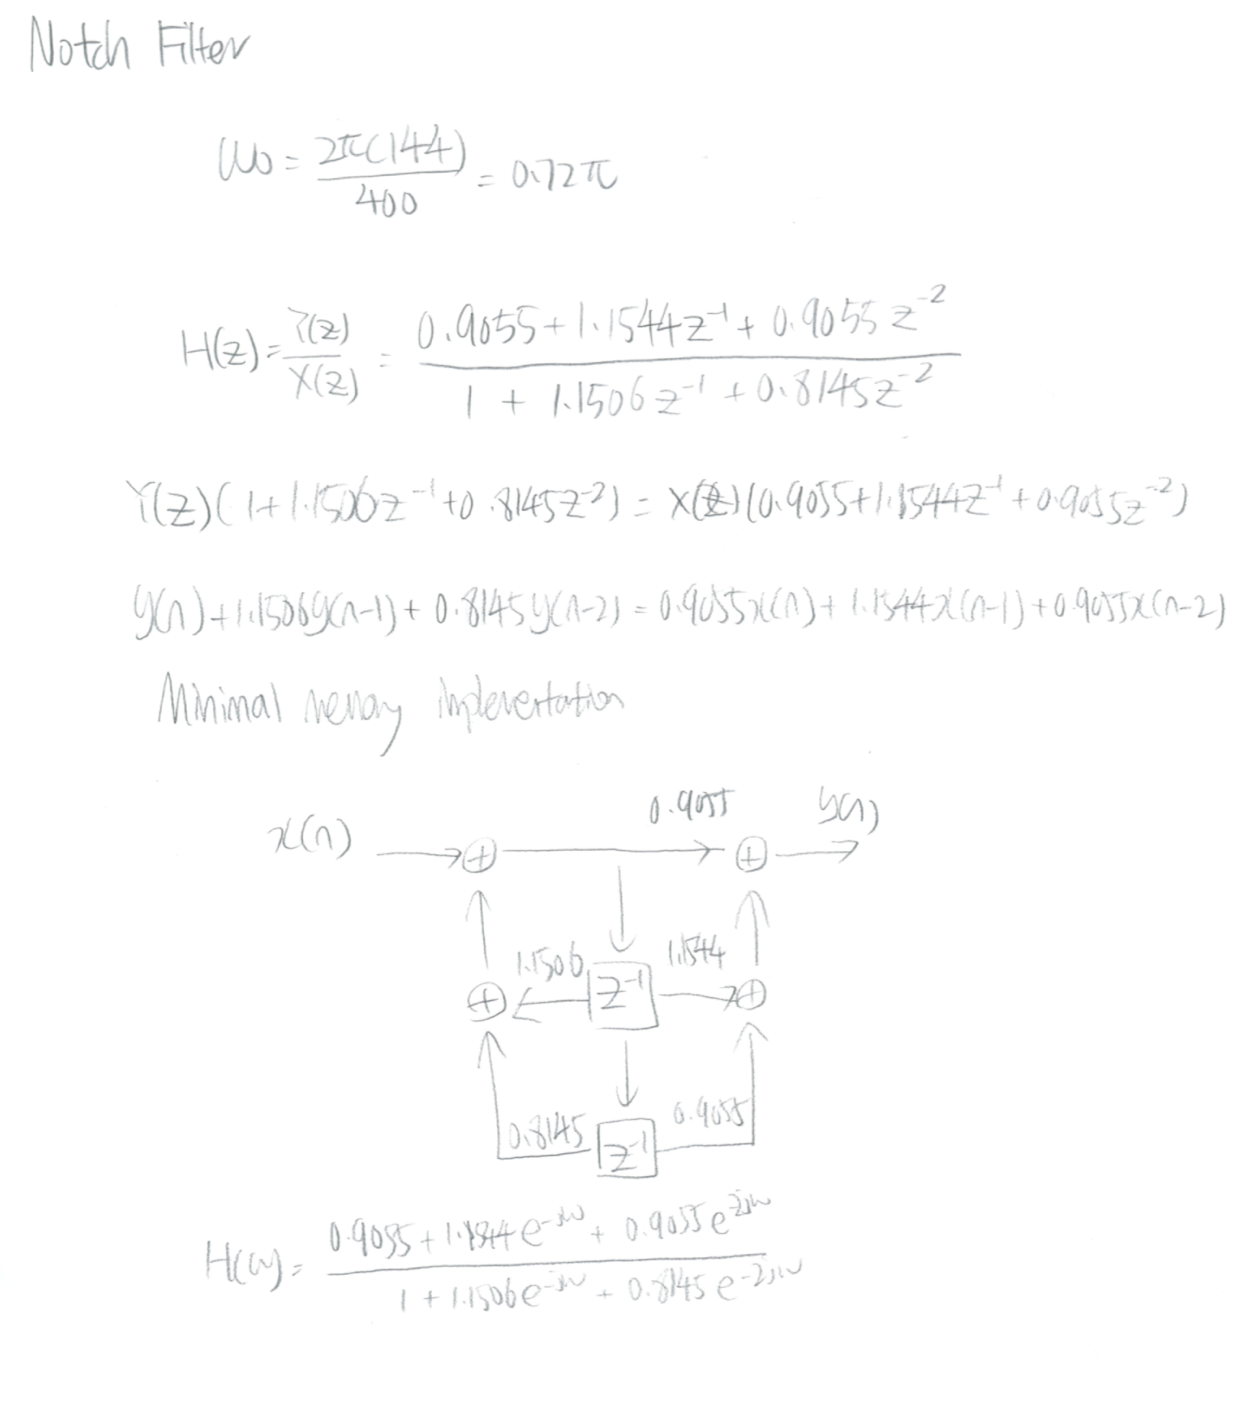 Notch Filter
ω₀ = 2π(144)/400 = 0.72π
H(z) = Y(z)/X(z) = (0.9055 + 1.1544z⁻¹ + 0.9055z⁻²)/(1 + 1.1506z⁻¹ + 0.8145z⁻²)
Y(z)(1+1.1506z⁻¹+0.8145z⁻²) = X(z)(0.9055+1.1544z⁻¹+0.9055z⁻²)
y(n)+1.1506y(n-1)+0.8145y(n-2) = 0.9055x(n)+1.1544x(n-1)+0.9055x(n-2)
Minimal memory implementation
0.9055 y(n)
x(n) + +
1.1506 1.1544
+ z⁻¹ +
0.8145 z⁻¹ 0.9055
H(ω) = (0.9055+1.1544e^-jω + 0.9055e^2jω)/(1+1.1506e^-jω + 0.8145e^-2jω)